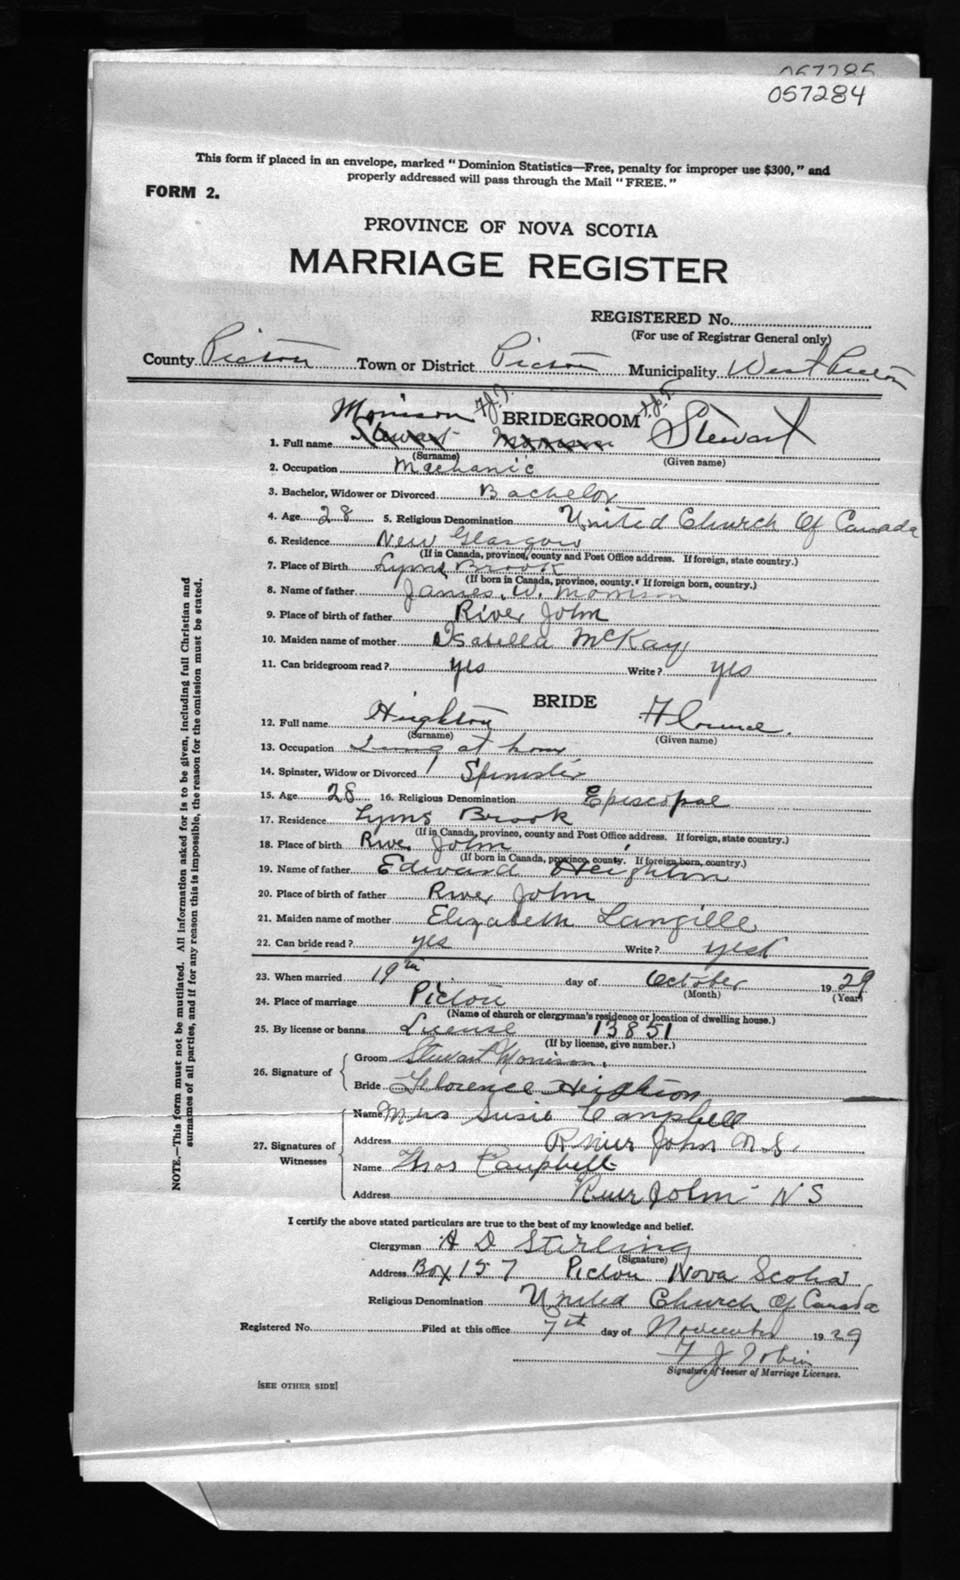 057285
057284
This form if placed in an envelope, marked "Dominion Statistics—Free, penalty for improper use $300," and
properly addressed will pass through the Mail "FREE."
FORM 2.
PROVINCE OF NOVA SCOTIA
MARRIAGE REGISTER
REGISTERED No.
(For use of Registrar General only)
County Pictou Town or District Pictou Municipality West Pictou
Morrison F.J.T. BRIDEGROOM F.J.T. Stewart
1. Full name Stewart Morrison
(Surname) (Given name)
2. Occupation Mechanic
3. Bachelor, Widower or Divorced Bachelor
4. Age 28 5. Religious Denomination United Church Of Canada
6. Residence New Glasgow
(If in Canada, province, county and Post Office address. If foreign, state country.)
7. Place of Birth Lyons Brook
(If born in Canada, province, county. If foreign born, country.)
8. Name of father James. W. Morrison
9. Place of birth of father River John
10. Maiden name of mother Isabella McKay
11. Can bridegroom read? yes Write? yes
BRIDE
12. Full name Heighton Florence.
(Surname) (Given name)
13. Occupation Living at home
14. Spinster, Widow or Divorced Spinster
15. Age 28 16. Religious Denomination Episcopal
17. Residence Lyons Brook
(If in Canada, province, county and Post Office address. If foreign, state country.)
18. Place of birth River John
(If born in Canada, province, county. If foreign born, country.)
19. Name of father Edward Heighton
20. Place of birth of father River John
21. Maiden name of mother Elizabeth Langille
22. Can bride read? yes Write? yes
23. When married 19th day of October 1929
(Month) (Year)
24. Place of marriage Pictou
(Name of church or clergyman's residence or location of dwelling house.)
25. By license or banns License 13851
(If by license, give number.)
26. Signature of Groom Stewart Morrison.
Bride Florence Heighton
27. Signatures of Witnesses Name Mrs Susie Campbell
Address River John N.S.
Name Thos Campbell
Address River John N S
I certify the above stated particulars are true to the best of my knowledge and belief.
Clergyman A D Stirling
(Signature)
Address Box 157 Pictou Nova Scotia
Religious Denomination United Church Of Canada
Registered No. Filed at this office 7th day of November 1929
F J Tobin
Signature of Issuer of Marriage Licenses.
[SEE OTHER SIDE]
NOTE.—This form must not be mutilated. All information asked for is to be given, including full Christian and
surnames of all parties, and if for any reason this is impossible, the reason for the omission must be stated.